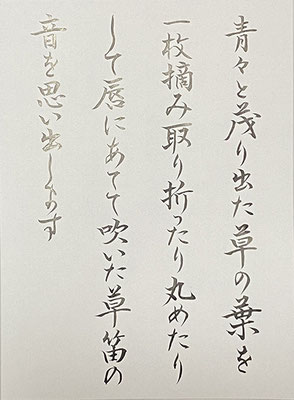 青々と茂り出た草の葉を
一枚摘み取り折ったり丸めたり
して唇にあてて吹いた草笛の
音を思い出します